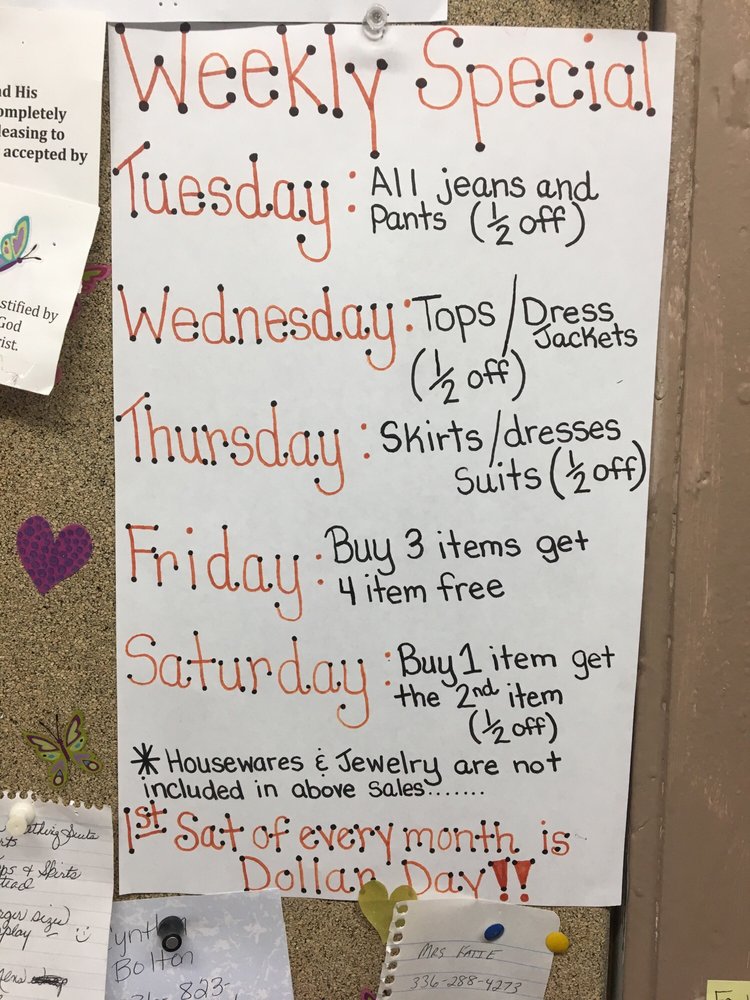 Weekly Special
Tuesday: All jeans and
Pants (1/2 off)
Wednesday: Tops/Dress
Jackets
(1/2 off)
Thursday: Skirts/dresses
Suits (1/2 off)
Friday: Buy 3 items get
4 item free
Saturday: Buy 1 item get
the 2nd item
(1/2 off)
* Housewares & Jewelry are not
included in above sales.......
1st Sat of every month is
Dollar Day!!
d His
ompletely
leasing to
accepted by
stified by
God
rist.
ps & Skirts
play
Bolton
823-
Mrs Katie
336-288-4273